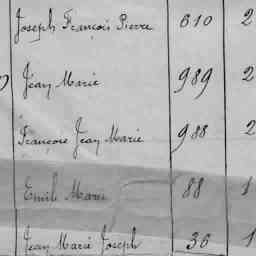 Joseph François Pierre 610 2
Jean Marie 989 2
François Jean Marie 988 2
Emile Marie 88 1
Jean Marie Joseph 36 1